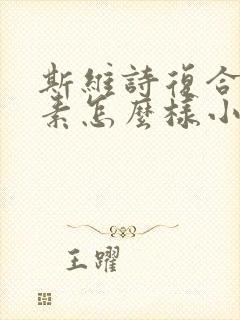 斯維詩復合
素怎麼樣小
王躍